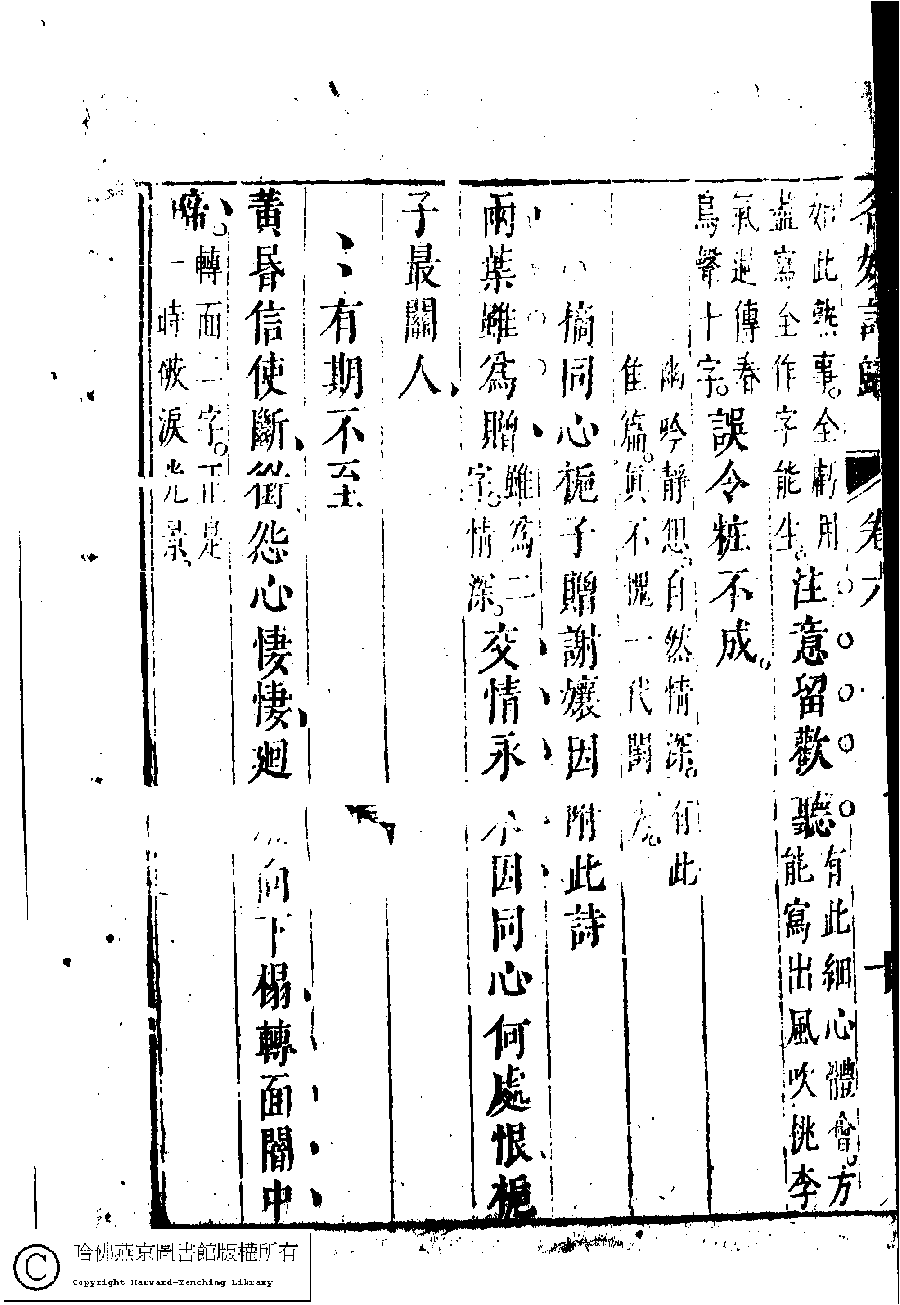 名媛詩歸 卷六 十
如此熟事。全虧用
盡寫全作字能生。
注意留歡聽
有此細心體會。方
能寫出風吹桃李
氣遞傳春
鳥聲十字。
誤令粧不成。
幽吟靜想。自然情深。有此
隹篇。真不愧一代閨
摘同心梔子贈謝孃因附此詩
兩葉雖為贈
雖為二
字。情深。
交情永 因同心何處恨梔
子最關人
有期不至
黃昏信使斷銜怨心悽悽廻 向下榻轉面闇中
啼
轉面二字。正是
一時倣淚光景
哈佛燕京圖書館版權所有
Copyright Harvard-Yenching Library